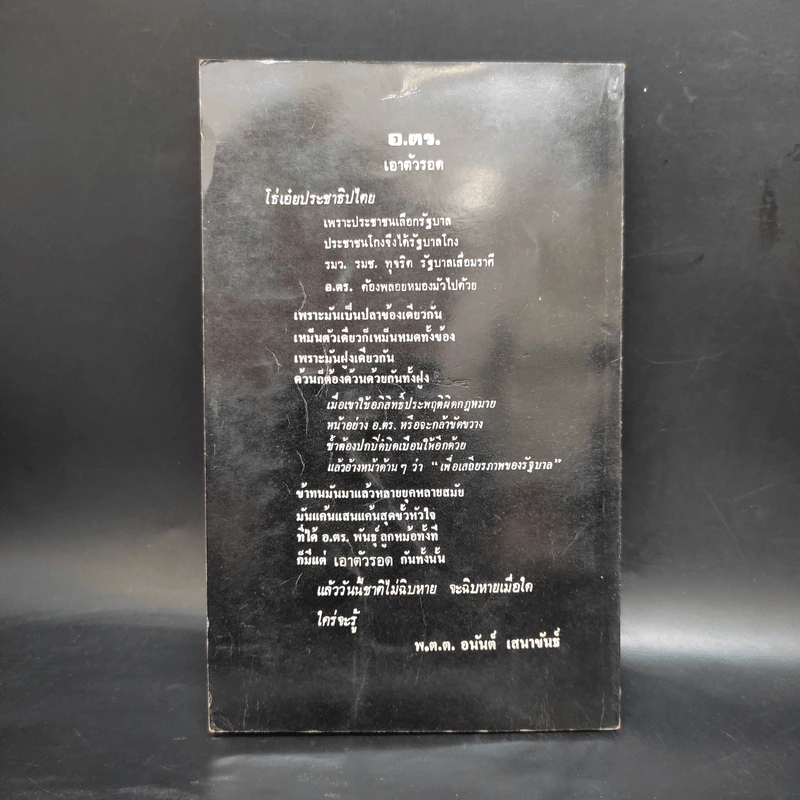 อ.ตร.
เอาตัวรอด
โธ่เอ๋ยประชาธิปไตย
เพราะประชาชนเลือกรัฐบาล
ประชาชนโกงจึงได้รัฐบาลโกง
รมว. รมช. ทุจริต รัฐบาลเสื่อมราศี
อ.ตร. ต้องพลอยหมองมัวไปด้วย
เพราะมันเป็นปลาข้องเดียวกัน
เหม็นตัวเดียวก็เหม็นหมดทั้งข้อง
เพราะมันฝูงเดียวกัน
ด้วนก็ต้องด้วนด้วยกันทั้งฝูง
เมื่อเขาใช้อภิสิทธิ์ประพฤติผิดกฎหมาย
หน้าอย่าง อ.ตร. หรือจะกล้าขัดขวาง
ซ้ำต้องปกปิดบิดเบือนให้อีกด้วย
แล้วอ้างหน้าด้าน ๆ ว่า “เพื่อเสถียรภาพของรัฐบาล”
ข้าทนมันมาแล้วหลายยุคหลายสมัย
มันแค้นแสนแค้นสุดขั้วหัวใจ
ที่ได้ อ.ตร. พันธุ์ ลูกหม้อทั้งที
ก็มีแต่ เอาตัวรอด กันทั้งนั้น
แล้ววันนี้ชาติไม่ฉิบหาย จะฉิบหายเมื่อใด
ใคร่จะรู้
พ.ต.ต. อนันต์ เสนาขันธ์